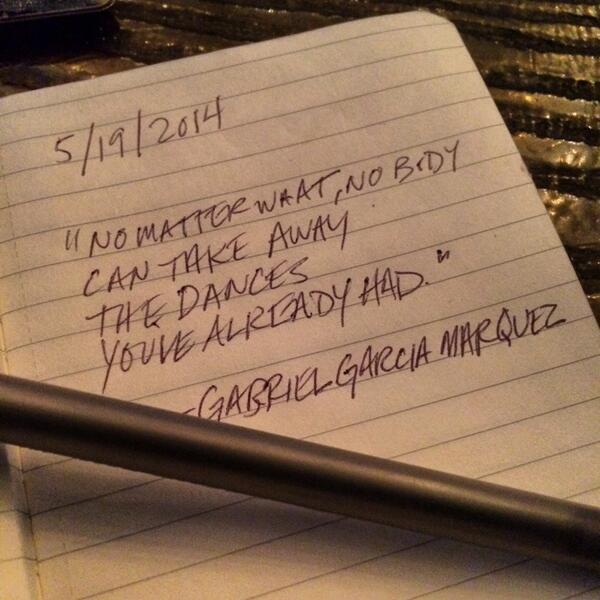 5/19/2014
"NO MATTER WHAT, NO BODY
CAN TAKE AWAY
THE DANCES
YOU'VE ALREADY HAD."
-GABRIEL GARCIA MARQUEZ